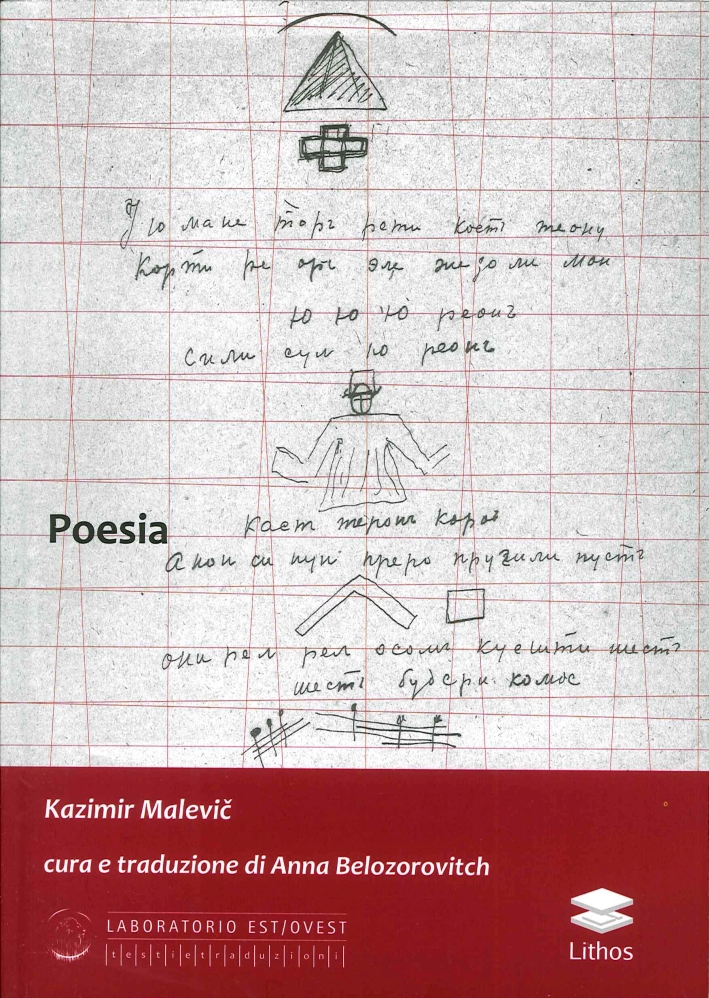 У ю мане торъ рети костъ теону
Корти ре оръ эле же до ли мои
ю ю ю реонъ
сили сул ю реонъ
Каст теронъ
Poesia
Акон си пуп преро пустъ
они рел рел осомъ куешти шестъ
шестъ комос
Kazimir Malevič
cura e traduzione di Anna Belozorovitch
LABORATORIO EST/OVEST
|t|e|s|t|i|e|t|r|a|d|u|z|i|o|n|i|
Lithos